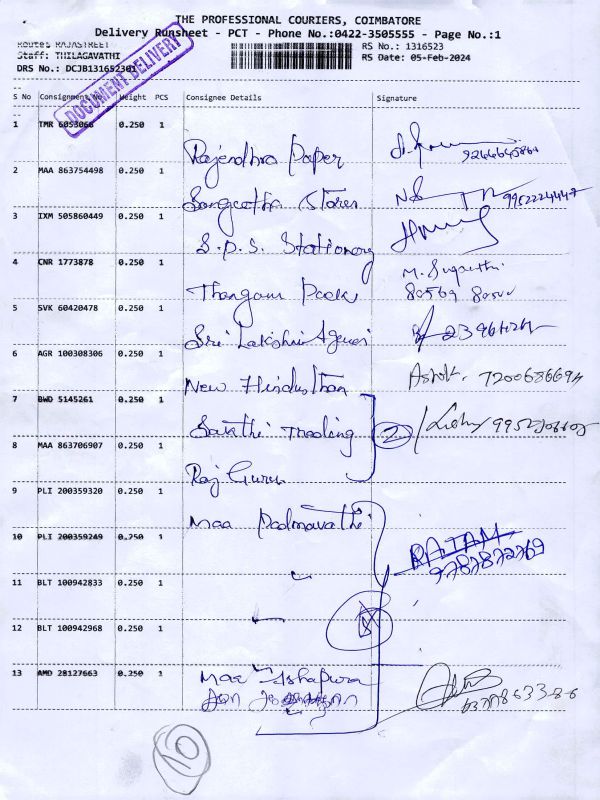 THE PROFESSIONAL COURIERS, COIMBATORE
Delivery Runsheet - PCT - Phone No.:0422-3505555 - Page No.:1
Route: RAJASTREET
RS No.: 1316523
Staff: THILAGAVATHI
RS Date: 05-Feb-2024
DRS No.: DCJB131652301
DOCUMENT DELIVERY
S No Consignment No Weight PCS Consignee Details Signature
1 TMR 6053066 0.250 1
Rajendhra Paper
2 MAA 863754498 0.250 1
Sangeetha Stores
3 IXM 505860449 0.250 1
S.P.S. Stationery
4 CNR 1773878 0.250 1 M. Suganthi
Thangam Pack
5 SVK 60420478 0.250 1
Sri Lakshmi Agenci
6 AGR 100308306 0.250 1
New Hindusthan Ashok. 7200686694
7 BWD 5145261 0.250 1
Sakthi Trading 2
8 MAA 863706907 0.250 1
Raj Guru
9 PLI 200359320 0.250 1
Maa Padmavathi
10 PLI 200359249 0.250 1
RATAM
9787872769
11 BLT 100942833 0.250 1
12 BLT 100942968 0.250 1
13 AMD 28127663 0.250 1
Maa Ashapura